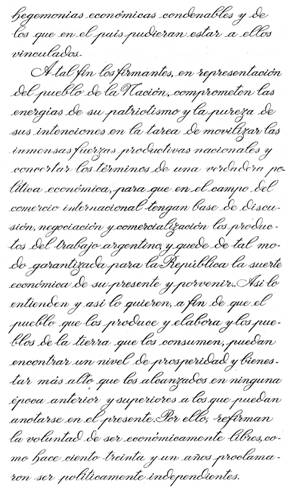 hegemonias económicas condenables y de
los que en el pais pudieran estar a ellos
vinculados.
A tal fin los firmantes, en representación
del pueblo de la Nación, comprometen las
energias de su patriotismo y la pureza de
sus intenciones en la tarea de movilizar las
inmensas fuerzas productivas nacionales y
concertar los términos de una verdadera po-
lítica económica, para que en el campo del
comercio internacional tengan base de discu-
sión, negociación y comercialización los produc-
tos del trabajo argentino, y quede de tal mo-
do garantizada para la República la suerte
económica de su presente y porvenir. Asi lo
entienden y asi lo quieren, a fin de que el
pueblo que los produce y elabora y los pue-
blos de la tierra que los consumen, puedan
encontrar un nivel de prosperidad y bienes-
tar más alto que los alcanzados en ninguna
época anterior y superiores a los que puedan
anotarse en el presente. Por ello, refirman
la voluntad de ser económicamente libres, co-
mo hace ciento treinta y un años proclama-
ron ser políticamente independientes.